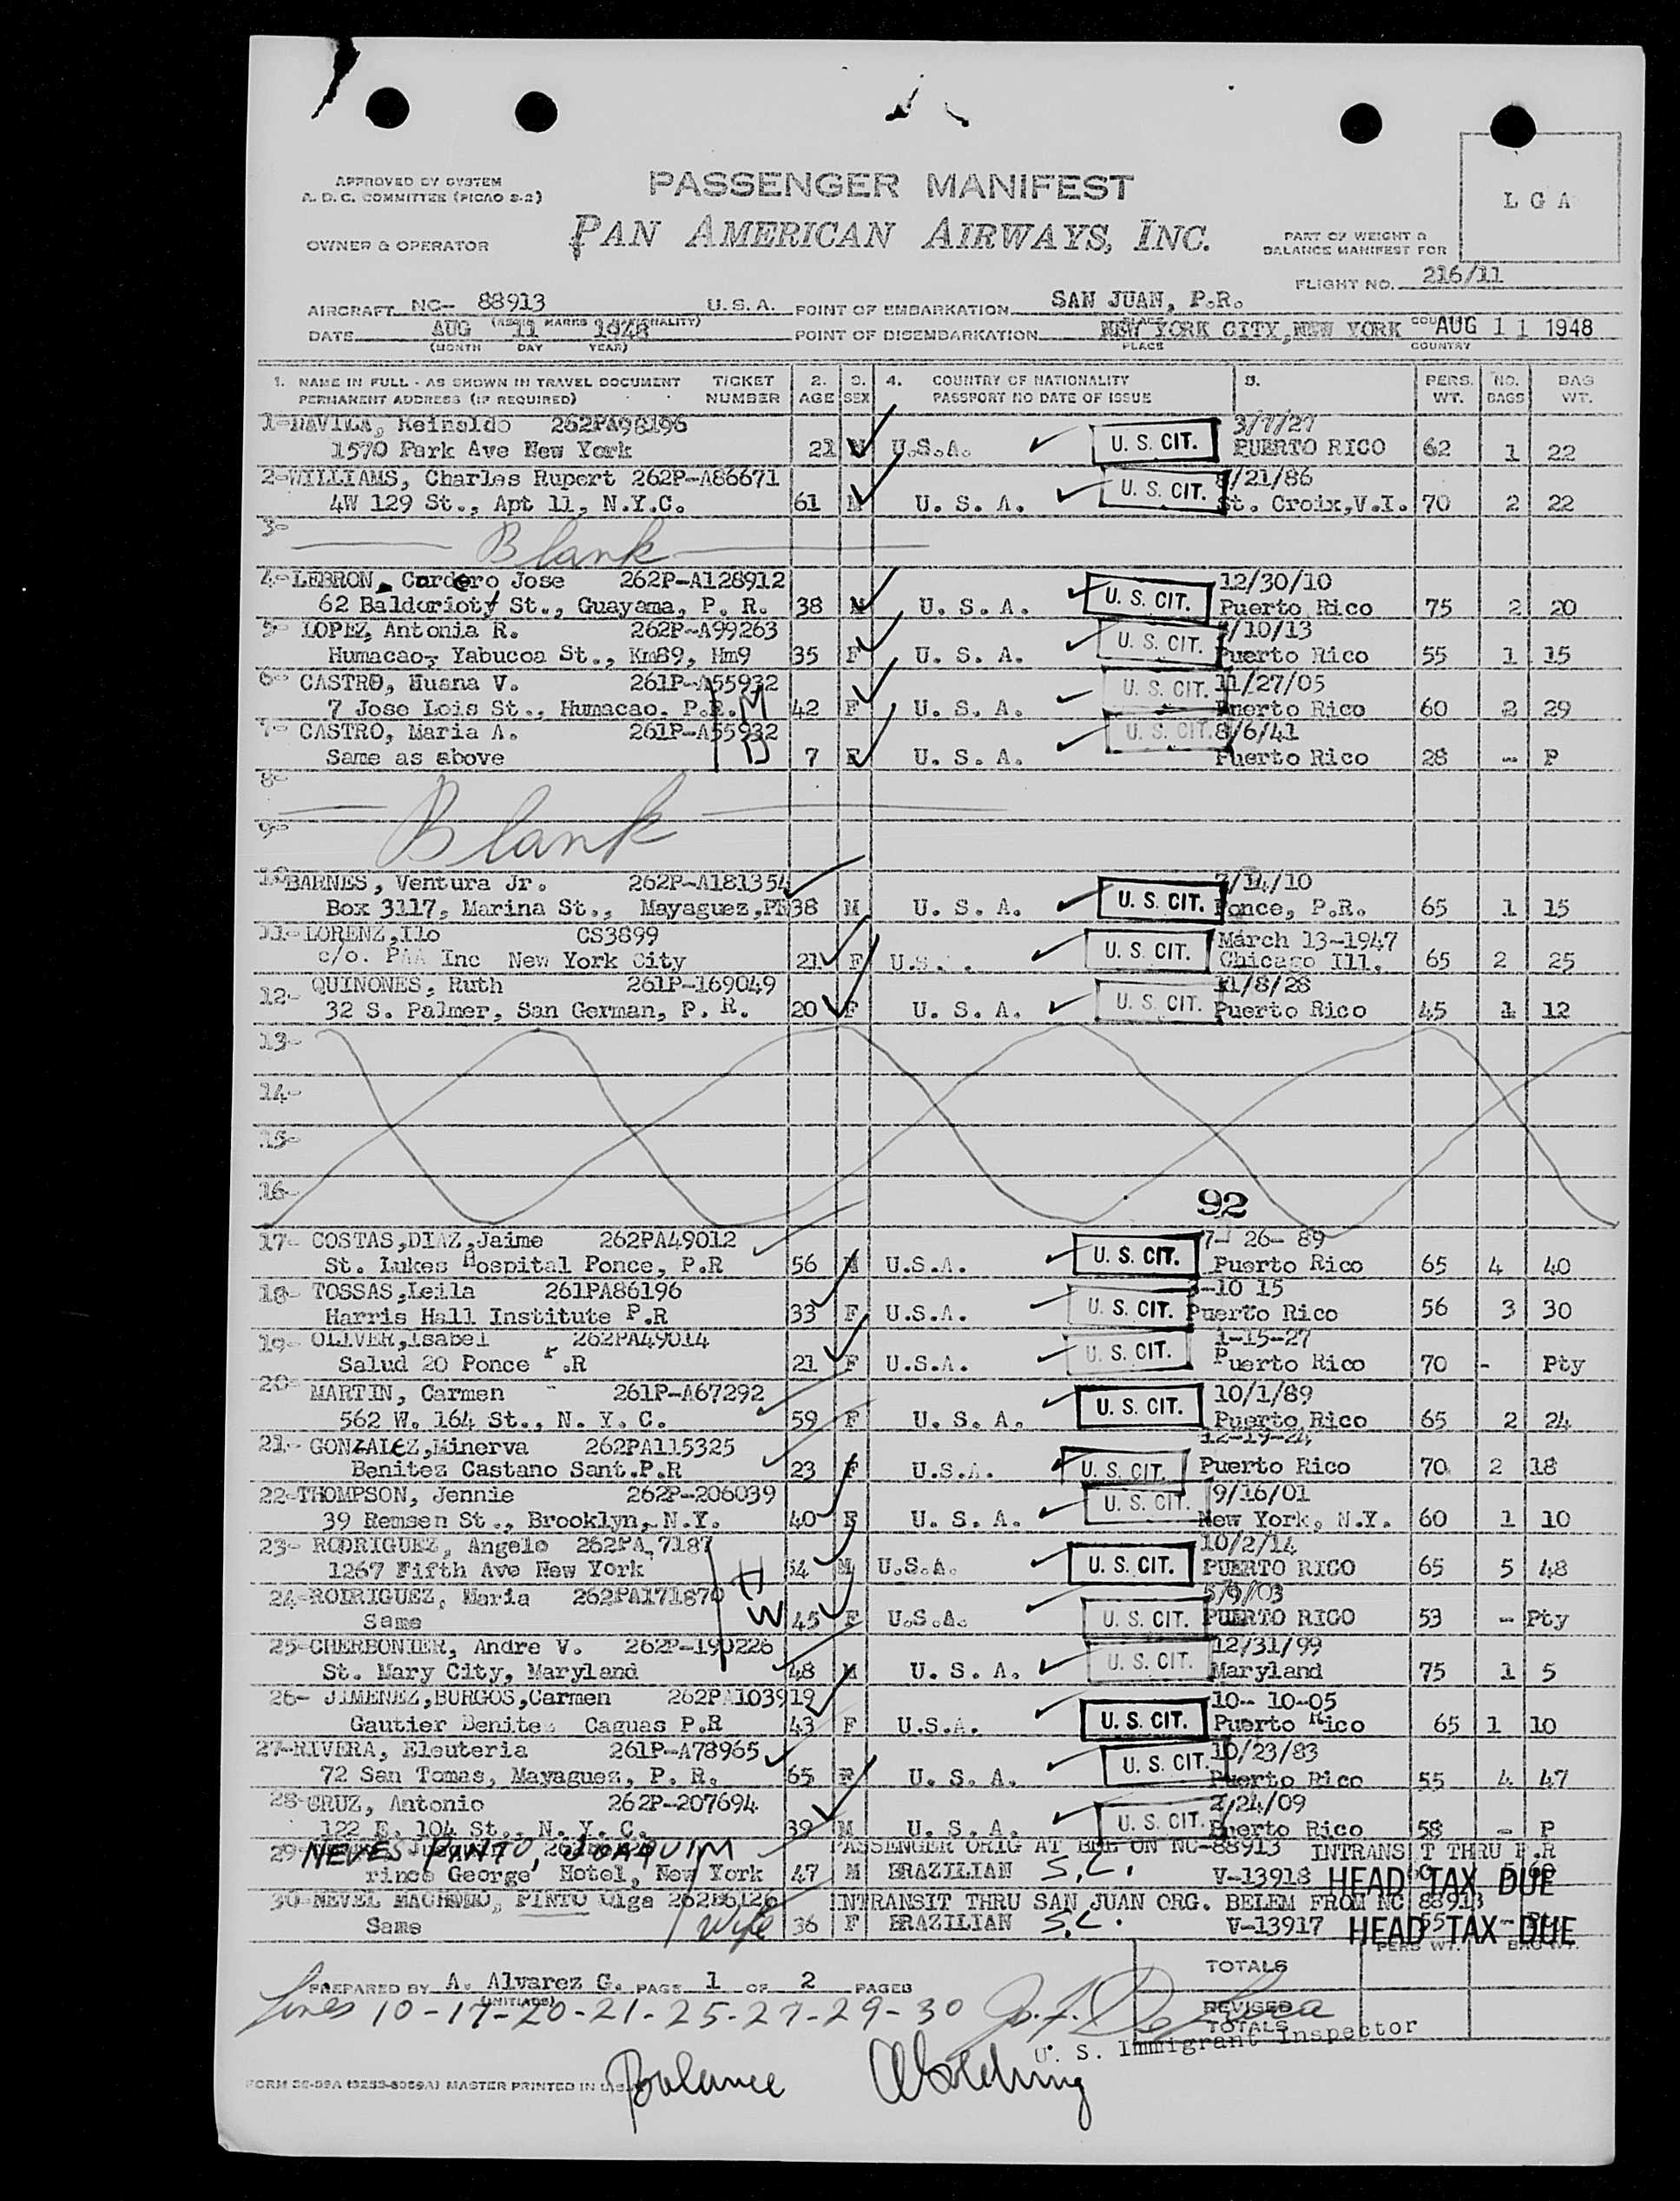 APPROVED BY SYSTEM
A. D. C. COMMITTEE (PICAO S-2)
OWNER & OPERATOR
PASSENGER MANIFEST
PAN AMERICAN AIRWAYS, INC.
L G A
PART OF WEIGHT &
BALANCE MANIFEST FOR
FLIGHT NO. 216/11
AIRCRAFT NC- 88913 U.S.A. POINT OF EMBARKATION SAN JUAN, P.R.
DATE AUG 11 1948 POINT OF DISEMBARKATION NEW YORK CITY, NEW YORK AUG 11 1948
(MONTH DAY YEAR) PLACE COUNTRY
1. NAME IN FULL - AS SHOWN IN TRAVEL DOCUMENT TICKET 2. 3. 4. COUNTRY OF NATIONALITY 5. PERS. NO. BAG
PERMANENT ADDRESS (IF REQUIRED) NUMBER AGE SEX PASSPORT NO DATE OF ISSUE WT. BAGS WT.
1-DAVILA, Reinaldo 262PA98196 3/7/27
1570 Park Ave New York 21 M U.S.A. U. S. CIT. PUERTO RICO 62 1 22
2-WILLIAMS, Charles Rupert 262P-A86671 /21/86
4W 129 St., Apt 11, N.Y.C. 61 M U. S. A. U. S. CIT. St. Croix,V.I. 70 2 22
3- Blank
4-LEBRON, Cordero Jose 262P-A128912 12/30/10
62 Baldorioty St., Guayama, P. R. 38 M U. S. A. U. S. CIT. Puerto Rico 75 2 20
5- LOPEZ, Antonia R. 262P-A99263 /10/13
Humacao, Yabucoa St., Km89, Hm9 35 F U. S. A. U. S. CIT. Puerto Rico 55 1 15
6- CASTRO, Huana V. 261P-A55932 M 11/27/05
7 Jose Lois St., Humacao. P.R. 42 F U. S. A. U. S. CIT. Puerto Rico 60 2 29
7- CASTRO, Maria A. 261P-A55932 D 8/6/41
Same as above 7 F U. S. A. U. S. CIT. Puerto Rico 28 - P
8-
Blank
9-
10-BARNES, Ventura Jr. 262P-A181354 /14/10
Box 3117, Marina St., Mayaguez,PR 38 M U. S. A. U. S. CIT. Ponce, P.R. 65 1 15
11-LORENZ,Ilo CS3899 March 13-1947
c/o. PAA Inc New York City 21 F U.S. . U. S. CIT. Chicago Ill. 65 2 25
12- QUINONES, Ruth 261P-169049 11/8/28
32 S. Palmer, San German, P. R. 20 F U. S. A. U. S. CIT. Puerto Rico 45 1 12
13-
14-
15-
16- 92
17- COSTAS,DIAZ,Jaime 262PA49012 7- 26- 89
St. Lukes Hospital Ponce, P.R 56 M U.S.A. U. S. CIT. Puerto Rico 65 4 40
18- TOSSAS,Leila 261PA86196 -10 15
Harris Hall Institute P.R 33 F U.S.A. U. S. CIT. Puerto Rico 56 3 30
19- OLIVER,Isabel 262PA49014 1-15-27
Salud 20 Ponce P.R 21 F U.S.A. U. S. CIT. Puerto Rico 70 - Pty
20- MARTIN, Carmen 261P-A67292 10/1/89
562 W. 164 St., N. Y. C. 59 F U. S. A. U. S. CIT. Puerto Rico 65 2 24
21- GONZALEZ,Minerva 262PA115325 12-19-24
Benitez Castano Sant.P.R 23 F U.S.A. U. S. CIT. Puerto Rico 70 2 18
22-THOMPSON, Jennie 262P-206039 9/16/01
39 Remsen St., Brooklyn, N.Y. 40 F U. S. A. U. S. CIT. New York, N.Y. 60 1 10
23- RODRIGUEZ, Angelo 262PA 7187 H 10/2/14
1267 Fifth Ave New York 54 M U.S.A. U. S. CIT. PUERTO RICO 65 5 48
24-RODRIGUEZ, Maria 262PA171870 W 5/9/03
Same 45 F U.S.A. U. S. CIT. PUERTO RICO 53 - Pty
25-CHERBONIER, Andre V. 262P-190226 12/31/99
St. Mary City, Maryland 48 M U. S. A. U. S. CIT. Maryland 75 1 5
26- JIMENEZ,BURGOS,Carmen 262PA103919 10- 10-05
Gautier Benitez Caguas P.R 43 F U.S.A. U. S. CIT. Puerto Rico 65 1 10
27-RIVERA, Eleuteria 261P-A78965 10/23/83
72 San Tomas, Mayaguez, P. R. 65 F U. S. A. U. S. CIT. Puerto Rico 55 4 47
28-CRUZ, Antonio 262P-207694 2/24/09
122 E. 104 St., N. Y. C. 39 M U. S. A. U. S. CIT. Puerto Rico 58 - P
29- NEVES PINTO, JOAQUIM PASSENGER ORIG AT BEL ON NC-88913 INTRANSIT THRU P.R
rince George Hotel, New York 47 M BRAZILIAN S.C. V-13918 HEAD TAX DUE
30-NEVEL MACHADO, PINTO Olga INTRANSIT THRU SAN JUAN ORG. BELEM FROM NC 88913
Same wife 36 F BRAZILIAN S.C. V-13917 55 HEAD TAX DUE
PERS WT. BAG WT.
PREPARED BY A. Alvarez G. PAGE 1 OF 2 PAGES TOTALS
(INITIALS)
Lines 10-17-20-21-25-27-29-30
REVISED
TOTALS
U. S. Immigrant Inspector
Balance
MASTER PRINTED IN